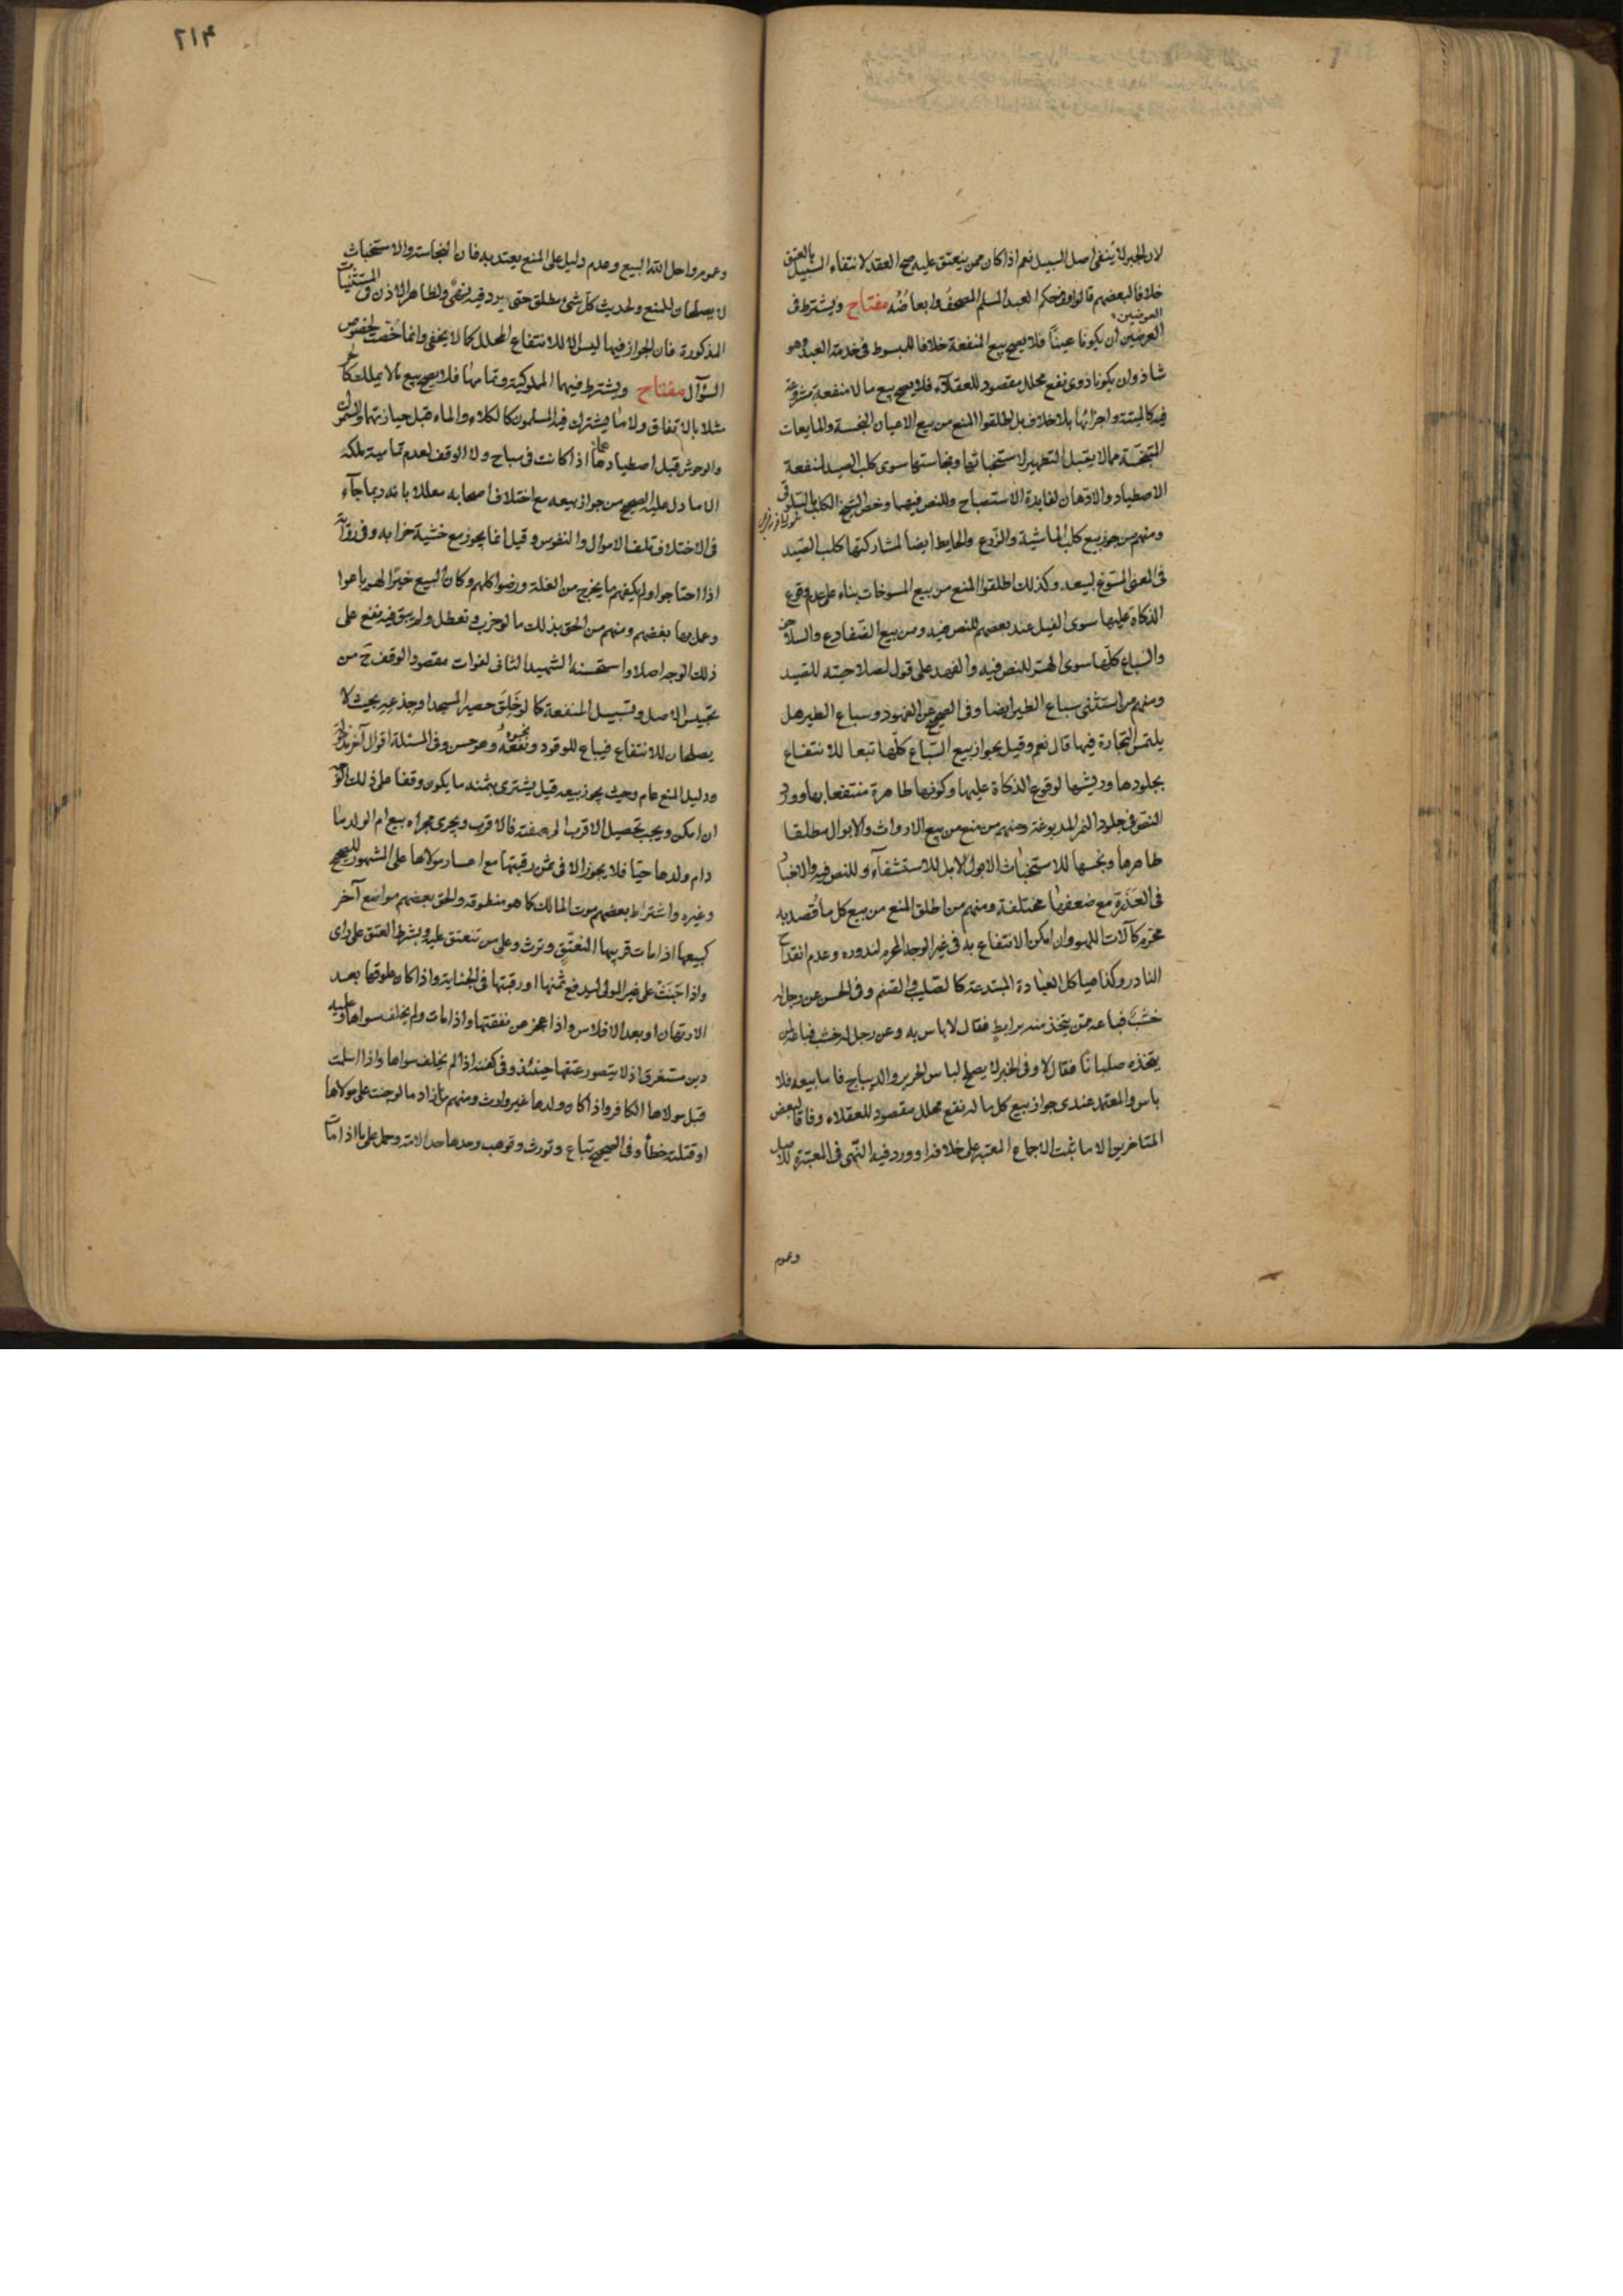 لان الجبر لا ينفى اصل السبيل نعم اذا كان ممن ينعتق عليه صح العقد لانتفاء السبيل بالعتق
خلافا لبعضهم قالوا وفى حكم العبد المسلم المصحف وابعاضه مفتاح ويشترط فى
العوضين
العوضين ان يكونا عينا فلا يصح بيع المنفعة خلافا للمبسوط فى خدمة العبد وهو
شاذ وان يكونا ذوى نفع محلل مقصود للعقلآء فلا يصح بيع ما لا منفعة مشروعة
فيه كالميتة واجزائها بلا خلاف بل اطلقوا المنع من بيع الاعيان النجسة والمايعات
المتنجسة مما لا يقبل التطهير لاستخباثها ونجاستها سوى كلب الصيد لمنفعة
الاصطياد والادهان لفايدة الاستصباح وللنص فيهما وخص الشيخ الكلب بالسلوقى
ومنهم من جوز بيع كلب الماشية والزرع والحايط ايضا لمشاركتها كلب الصيد
فى المعنى المسوغ لبيعه وكذلك اطلقوا المنع من بيع المسوخات بناء على عدم وقوع
الذكاة عليها سوى الفيل عند بعضهم للنص فيه ومن بيع الضفادع والسلاحف
والسباع كلها سوى الهر للنص فيه والفهد على قول لصلاحيته للصيد
ومنهم من استثنى سباع الطير ايضا وفى الصحيح عن الفهود وسباع الطير هل
يلتمس التجارة فيها قال نعم وقيل بجواز بيع السباع كلها تبعا للانتفاع
بجلودها وريشها لوقوع الذكاة عليها وكونها طاهرة منتفعا بها وورود
النص فى جلود النمر المدبوغة ومنهم من منع من بيع الارواث والابوال مطلقا
طاهرها ونجسها للاستخباث الا بول الابل للاستشفآء وللنص فيه والاخبار
فى العذرة مع ضعفها مختلفة ومنهم من اطلق المنع من بيع كل ما قصد به
محرم كآلات اللهو وان امكن الانتفاع به فى غير الوجه المحرم لندوره وعدم انقداح
النادر وكذا هياكل العبادة المبتدعة كالصليب والصنم وفى الحسن عن رجل له
خشب فباعه ممن يتخذ منه برابط فقال لا باس به وعن رجل له خشب فباعه ممن
يتخذه صلبانا فقال لا وفى الخبر لا يصلح لباس الحرير والديباج فاما بيعه فلا
باس والمعتمد عندى جواز بيع كل ما له نفع محلل مقصود للعقلاء وفاقا لبعض
المتاخرين الا ما ثبت الاجماع المعتبر على خلافه او ورد فيه النهى فى المعتبرة للاصل
وعموم
٢١٤
وعموم واحل الله البيع وعدم دليل على المنع يعتد به فان النجاسة والاستخباث
لا يصلحان للمنع ولحديث كل شئ مطلق حتى يرد فيه نهى ولظاهر الاذن فى المستثنيات
المذكورة فان الجواز فيها ليس الا للانتفاع المحلل كما لا يخفى وانما خصت لخصوص
السؤال مفتاح ويشترط فيهما المملوكية وتماميتها فلا يصح بيع ما لا يملك كالحر
مثلا بالاتفاق ولا ما يشترك فيه المسلمون كالكلاء والماء قبل حيازتهما والسموك
والوحوش قبل اصطيادها اذا كانت فى مباح ولا الوقف لعدم تمامية ملكه
الا ما دل عليه الصحيح من جواز بيعه مع اختلاف اصحابه معللا بانه ربما جآء
فى الاختلاف تلف الاموال والنفوس وقيل انما يجوز مع خشية خرابه وفى رواية
اذا احتاجوا ولم يكفهم ما يخرج من الغلة ورضوا كلهم وكان البيع خيرا لهم باعوا
وعمل بها بعضهم ومنهم من الحق بذلك ما لو خرب وتعطل ولم يبق فيه نفع على
ذلك الوجه اصلا واستحسنه الشهيد الثانى لفوات مقصود الوقف ح من
تحبيس الاصل وتسبيل المنفعة كما لو خلق حصير المسجد او جذعه بحيث لا
يصلحان للانتفاع فيباع للوقود ونحوه وهو حسن وفى المسئلة اقوال آخر
ودليل المنع عام وحيث يجوز بيعه قيل يشترى بثمنه ما يكون وقفا على ذلك الوجه
ان امكن ويجب تحصيل الاقرب الى صفته فالاقرب ويجرى مجراه بيع ام الولد ما
دام ولدها حيا فلا يجوز الا فى ثمن رقبتها مع اعسار مولاها على المشهور للصحيح
وغيره واشتراط بعضهم موت المالك كما هو منطوقه والحق بعضهم مواضع آخر
كبيعها اذا مات قريبها لتنعتق وترث وعلى من تنعتق عليه وبشرط العتق على راى
واذا جنت على غير المولى ليدفع ثمنها او رقبتها فى الجناية واذا كان علوقها بعد
الارتهان او بعد الافلاس واذا عجز عن نفقتها واذا مات ولم يخلف سواها وعليه
دين مستغرق اذ لا يتصور عتقها حينئذ وفى كفنه اذا لم يخلف سواها واذا اسلمت
قبل مولاها الكافر واذا كان ولدها غير وارث ومنهم من زاد ما لو جنت على مولاها
او قتلته خطأ وفى الصحيح تباع وتورث وتوهب وحدها حد الامة وحمل على ما اذا مات